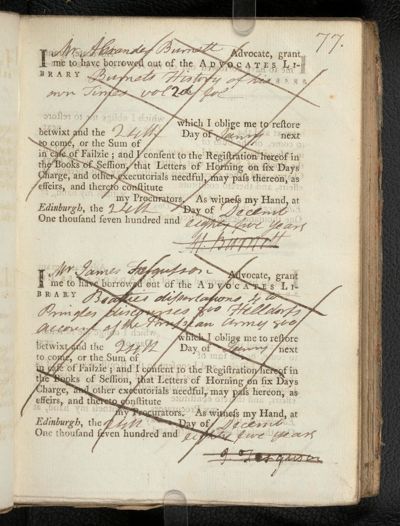 77.
I Mr. Alexander Burnett Advocate, grant
me to have borrowed out of the ADVOCATES LI-
BRARY Burnets History of his
own Times vol 2d fol
which I oblige me to reſtore
betwixt and the 24th Day of Janry next
to come, or the Sum of
in caſe of Failzie; and I conſent to the Regiſtration hereof in
the Books of Seſſion, that Letters of Horning on ſix Days
Charge, and other executorials needful, may paſs thereon, as
effeirs, and thereto conſtitute
my Procurators. As witneſs my Hand, at
Edinburgh, the 24th Day of Decemr
One thouſand ſeven hundred and eighty five years
A Burnett
I Mr. James Ferguſson Advocate, grant
me to have borrowed out of the ADVOCATES LI-
BRARY Beatties diſsertations, 4to
Pringles diſcourses 8vo
account of the Army 8vo
which I oblige me to reſtore
betwixt and the 24th Day of Janry next
to come, or the Sum of
in caſe of Failzie; and I conſent to the Regiſtration hereof in
the Books of Seſſion, that Letters of Horning on ſix Days
Charge, and other executorials needful, may paſs hereon, as
effeirs, and thereto conſtitute
my Procurators. As witneſs my Hand, at
Edinburgh, the 24th Day of Decemr
One thouſand ſeven hundred and eighty five years
J Ferguson